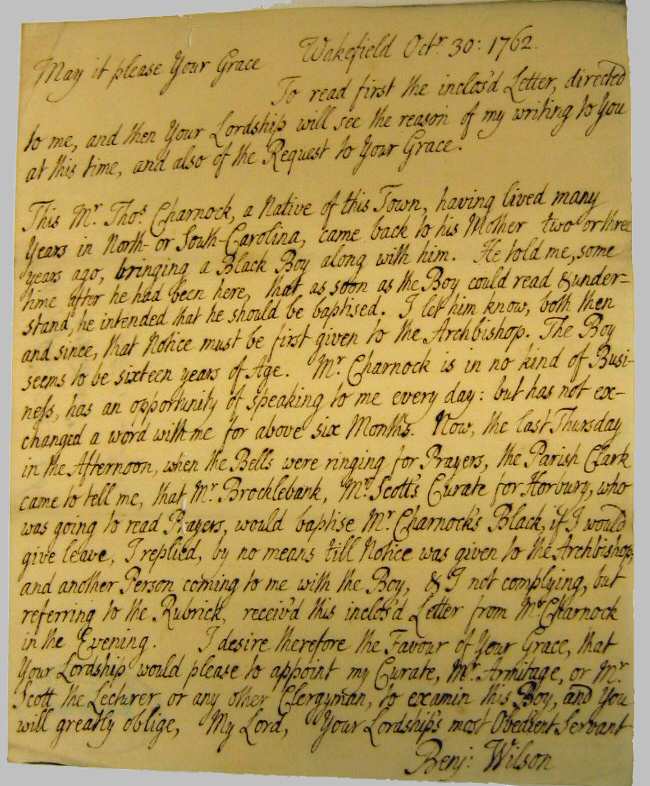 Wakefield Octr. 30: 1762.
May it please Your Grace
To read first the inclos'd Letter, directed
to me, and then Your Lordship will see the reason of my writing to You
at this time, and also of the Request to Your Grace.
This Mr. Thos. Charnock, a Native of this Town, having lived many
Years in North- or South-Carolina, came back to his Mother two or three
years ago, bringing a Black Boy along with him. He told me, some
time after he had been here, that as soon as the Boy could read & under-
stand, he intended that he should be baptised. I let him know, both then
and since, that Notice must be first given to the Archbishop. The Boy
seems to be sixteen years of Age. Mr. Charnock is in no kind of Busi-
ness, has an opportunity of speaking to me every day: but has not ex-
changed a word with me for above six Months. Now, the last Thursday
in the Afternoon, when the Bells were ringing for Prayers, the Parish Clark
came to tell me, that Mr. Brocklebank, Mr. Scott's Curate for Horbury, who
was going to read Prayers, would baptise Mr. Charnock's Black, if I would
give leave, I replied, by no means till Notice was given to the Archbishop,
and another Person coming to me with the Boy, & I not complying, but
referring to the Rubrick, receiv'd this inclos'd Letter from Mr. Charnock
in the Evening. I desire therefore the Favour of Your Grace, that
Your Lordship would please to appoint my Curate, Mr. Armitage, or Mr.
Scott the Lecturer, or any other Clergyman, to examin this Boy, and You
will greatly oblige, My Lord, Your Lordship's most Obedient Servant
Benj: Wilson